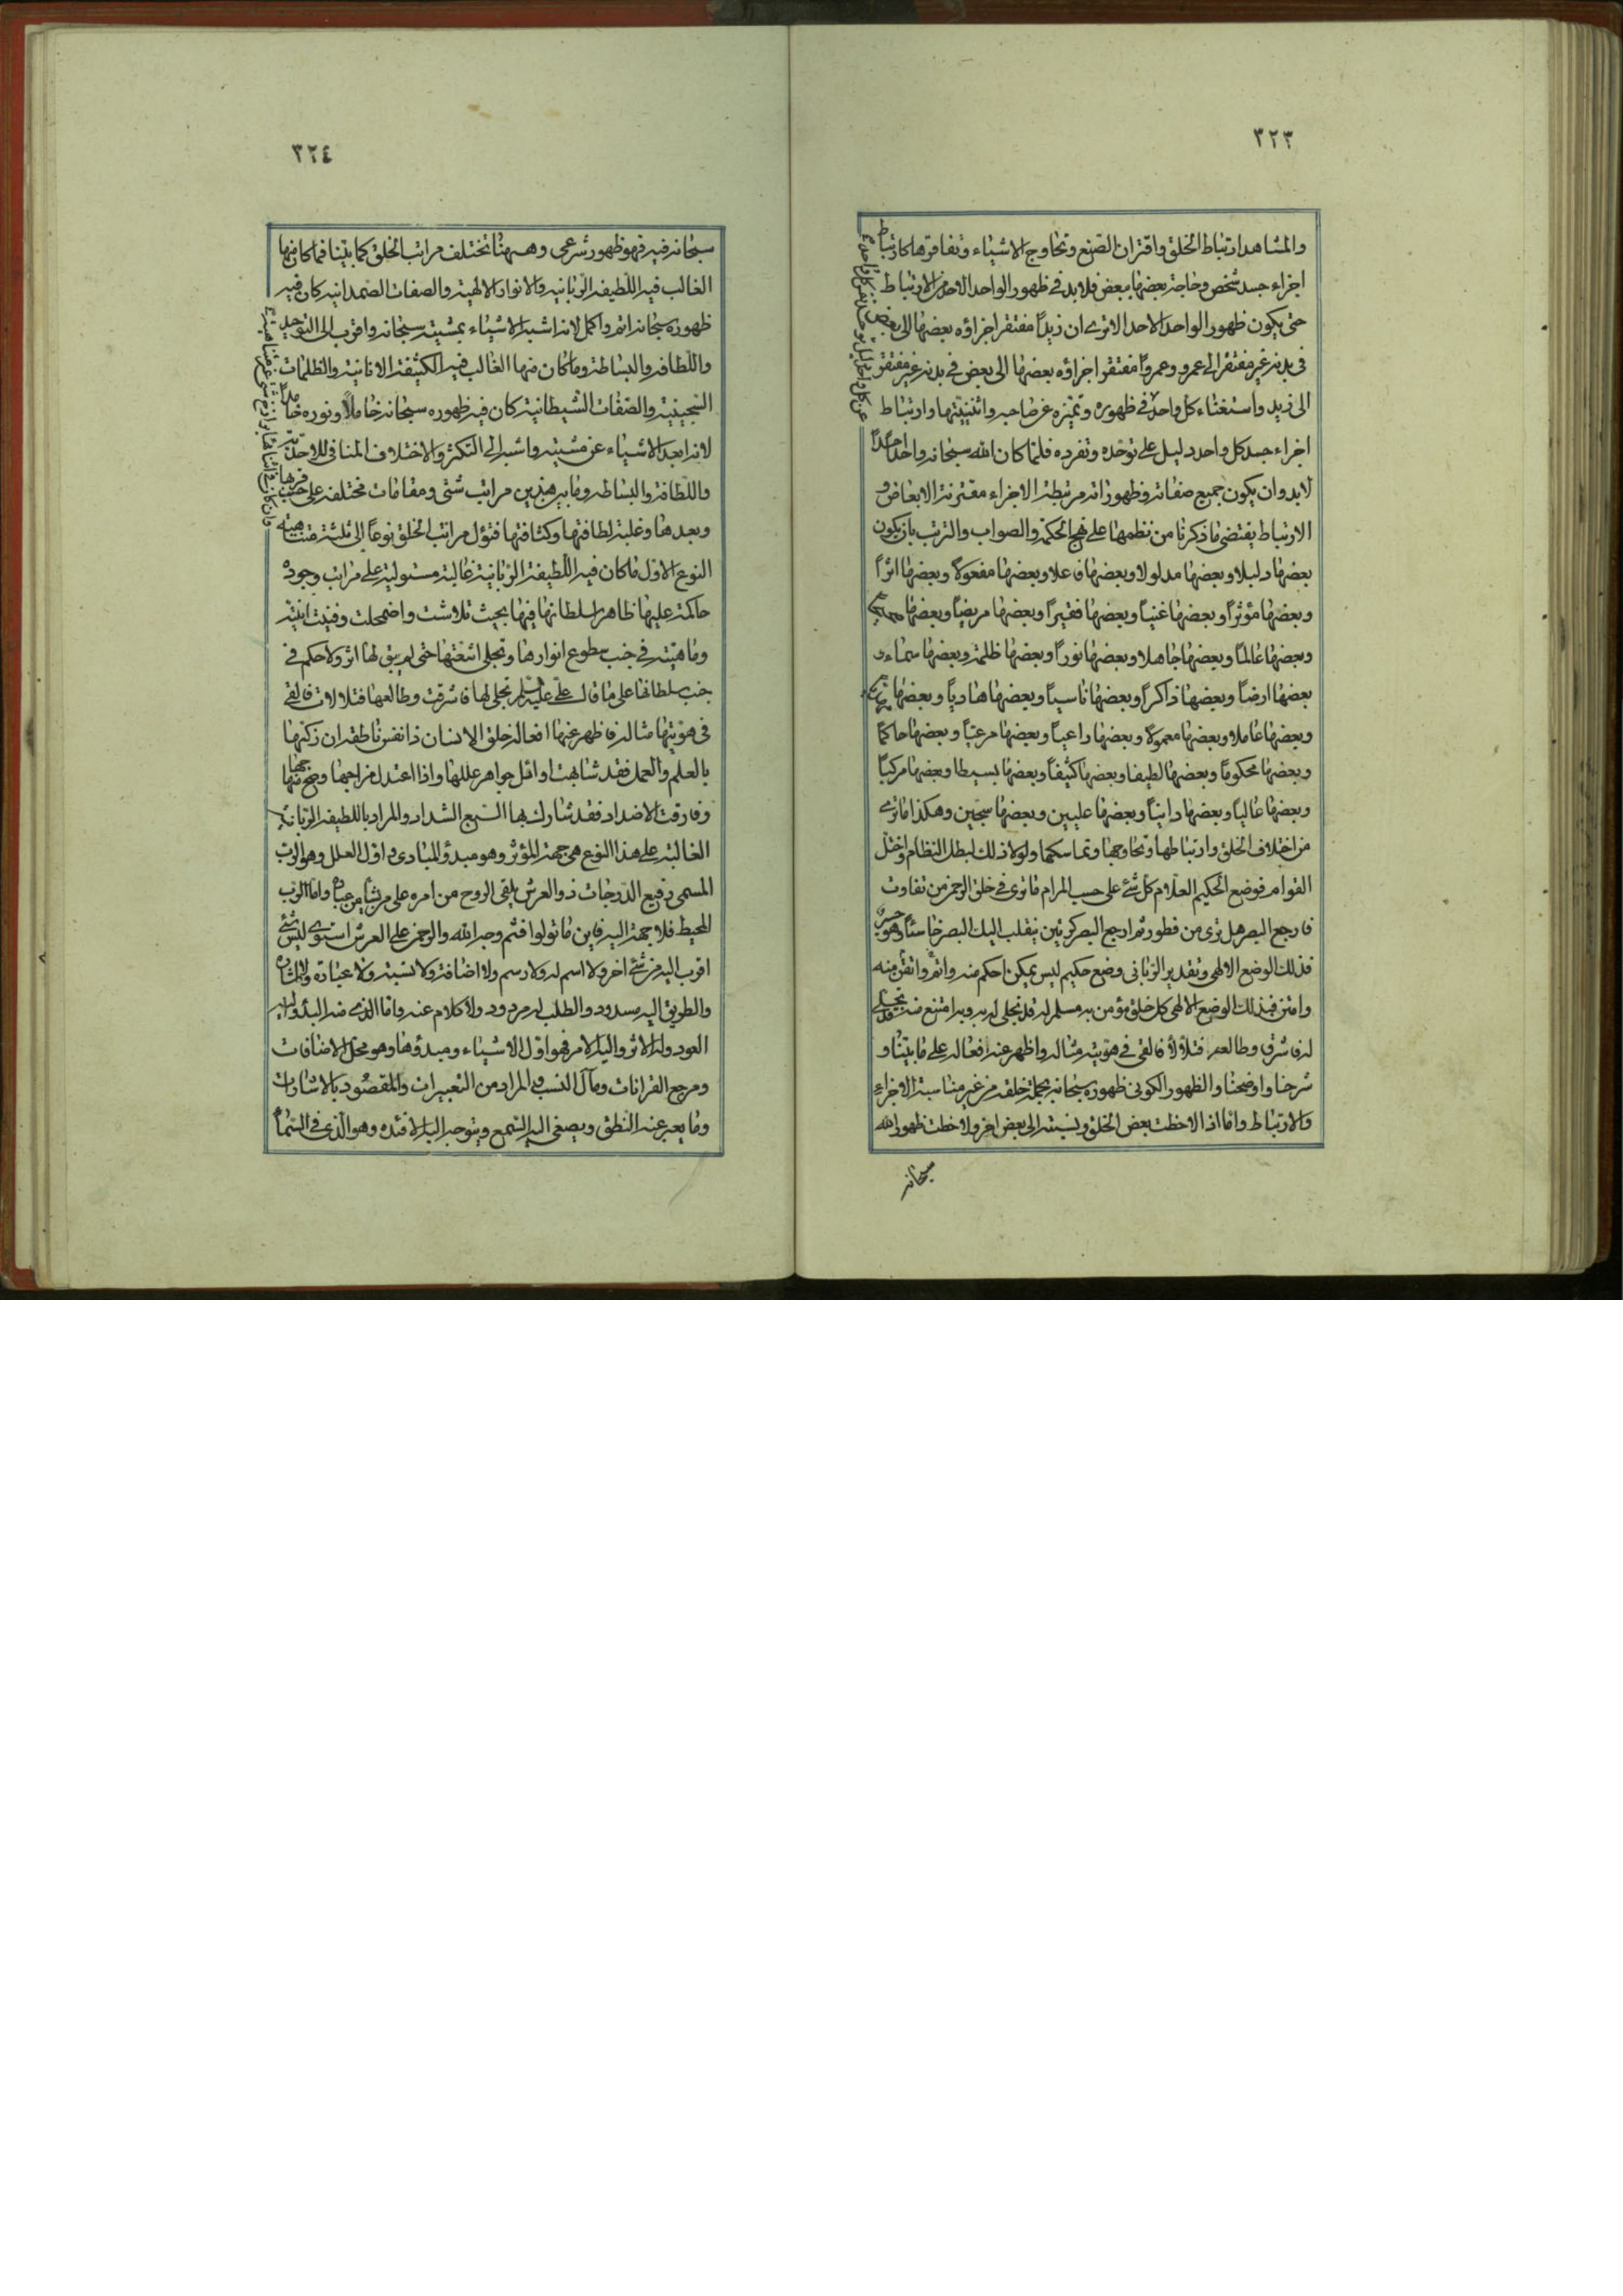 ٣٢٣
والمشاهد ارتباط الخلق واقتران الصنع وتحاوج الاشياء وتفاقرها كارتباط
اجزاء جسد شخص وحاجة بعضها ببعض فلا بد في ظهور الواحد الاحد من الارتباط
حتى يكون ظهور الواحد الاحد الا ترى ان زيداً مفتقر اجزاؤه بعضها الى بعض
في بدنه غير مفتقر الى عمرو وعمرواً مفتقر اجزاؤه بعضها الى بعض في بدنه غير مفتقر
الى زيد واستغناء كل واحد في ظهوره وتميزه عن صاحبه واثنينيتها وارتباط
اجزاء جسد كل واحد دليل على توحده وتفرده فلما كان الله سبحانه واحداً احداً
لا بد وان يكون جميع صفاته وظهوراته مرتبطة الاجزاء مقترنة الابعاض و
الارتباط يقتضى ما ذكرنا من نظمها على نهج الحكمة والصواب والترتب بان يكون
بعضها دليلا وبعضها مدلولا وبعضها فاعلا وبعضها مفعولاً وبعضها اثراً
وبعضها مؤثراً وبعضها غنياً وبعضها فقيراً وبعضها مريضاً وبعضها
وبعضها عالماً وبعضها جاهلا وبعضها نوراً وبعضها ظلمة وبعضها سماء و
بعضها ارضاً وبعضها ذاكراً وبعضها ناسياً وبعضها هادياً وبعضها
وبعضها عاملا وبعضها معمولاً وبعضها راعياً وبعضها مرعياً وبعضها حاكماً
وبعضها محكوماً وبعضها لطيفا وبعضها كثيفاً وبعضها بسيطا وبعضها مركباً
وبعضها عالياً وبعضها دانياً وبعضها عليين وبعضها سجين وهكذا ما ترى
من اختلاف الخلق وارتباطها وتحاوجها وتماسكها ولولا ذلك لبطل النظام واختل
القوام فوضع الحكيم العلام كل شئ على حسب المرام ما ترى في خلق الرحمن من تفاوت
فارجع البصر هل ترى من فطور ثم ارجع البصر كرتين ينقلب اليك البصر خاسئاً وهو حسير
فذلك الوضع الالهى وتقدير الربانى وضع حكيم ليس يمكن احكم منه واتم واتقن منه
وامتن فبذلك الوضع الالهى كل خلق مؤمن به مسلم له قد تجلى له به وبه امتنع منه
له فاشرق وطالعه فتلألأ فالقى في هويته مثاله واظهر عنه افعاله على ما بينا و
شرحنا واوضحنا والظهور الكونى ظهوره سبحانه بجملة خلقه من غير مناسبة الاجزاء
والارتباط واما اذا لاحظت بعض الخلق ونسبته الى بعض اخر ولاحظت ظهور الله
سبحانه
٣٢٤
سبحانه فيه فهو ظهور شرعى وههنا تختلف مراتب الخلق كما بينا فما كان منها
الغالب فيه اللطيفة الربانية والانوار الالهية والصفات الصمدانية كان فيه
ظهوره سبحانه اتم واكمل لانه اشبه الاشياء بمشيته سبحانه واقرب الى التوحيد
واللطافة والبساطة وما كان منها الغالب فيه الكثيفة الانانية والظلمات
السجينية والصفات الشيطانية كان فيه ظهوره سبحانه خاملاً ونوره خامداً
لانه ابعد الاشياء عن مشيته واشبه الى التكثر والاختلاف المنافى للاحدية
واللطافة والبساطة وما بين هذين مراتب شتى ومقامات مختلفة على حسب قربها
وبعدها وغلبة لطافتها وكثافتها فتؤل مراتب الخلق نوعاً الى ثلثة متناهية
النوع الاول ما كان فيه اللطيفة الربانية غالبة مستولية على مراتب وجوده
حاكمة عليها ظاهراً سلطانها فيها بحيث تلاشت واضمحلت وفنيت انيته
وماهيته في جنب سطوع انوارها وتجلى اشعتها حتى لم يبق لها اثر ولا حكم في
جنب سلطانها على ما قال على عليه السلم تجلى لها فاشرقت وطالعها فتلألأت فالقى
في هويتها مثاله فاظهر عنها افعاله خلق الانسان ذا نفس ناطقة ان زكيها
بالعلم والعمل فقد شابهت اوائل جواهر عللها واذا اعتدل مزاجها وصح منهاجها
وفارقت الاضداد فقد شارك بها السبع الشداد والمراد باللطيفة الربانية
الغالبة على هذا النوع هى جهة المؤثر وهو مبدؤ المبادى واول العلل وهو الرب
المسمى رفيع الدرجات ذو العرش يلقى الروح من امره على من يشاء من عباده واما الرب
المحيط فلا جهة اليه فاين ما تولوا فثم وجه الله والرحمن على العرش استوى ليس شئ
اقرب اليه من شئ اخر ولا اسم له ولا رسم ولا اضافة ولا نسبة ولا عبارة ولا اشارة
والطريق اليه مسدود والطلب له مردود ولا كلام عنه واما الذى منه البدؤ واليه
العود وله الاثر واليه الامر فهو اول الاشياء ومبدؤها وهو محل الاضافات
ومرجع القرانات ومآل النسب والمراد من التعبيرات والمقصود بالاشارات
وما يعبر عنه النطق ويصغى اليه السمع ويتوجه اليه الافئدة وهو الذى في السماء